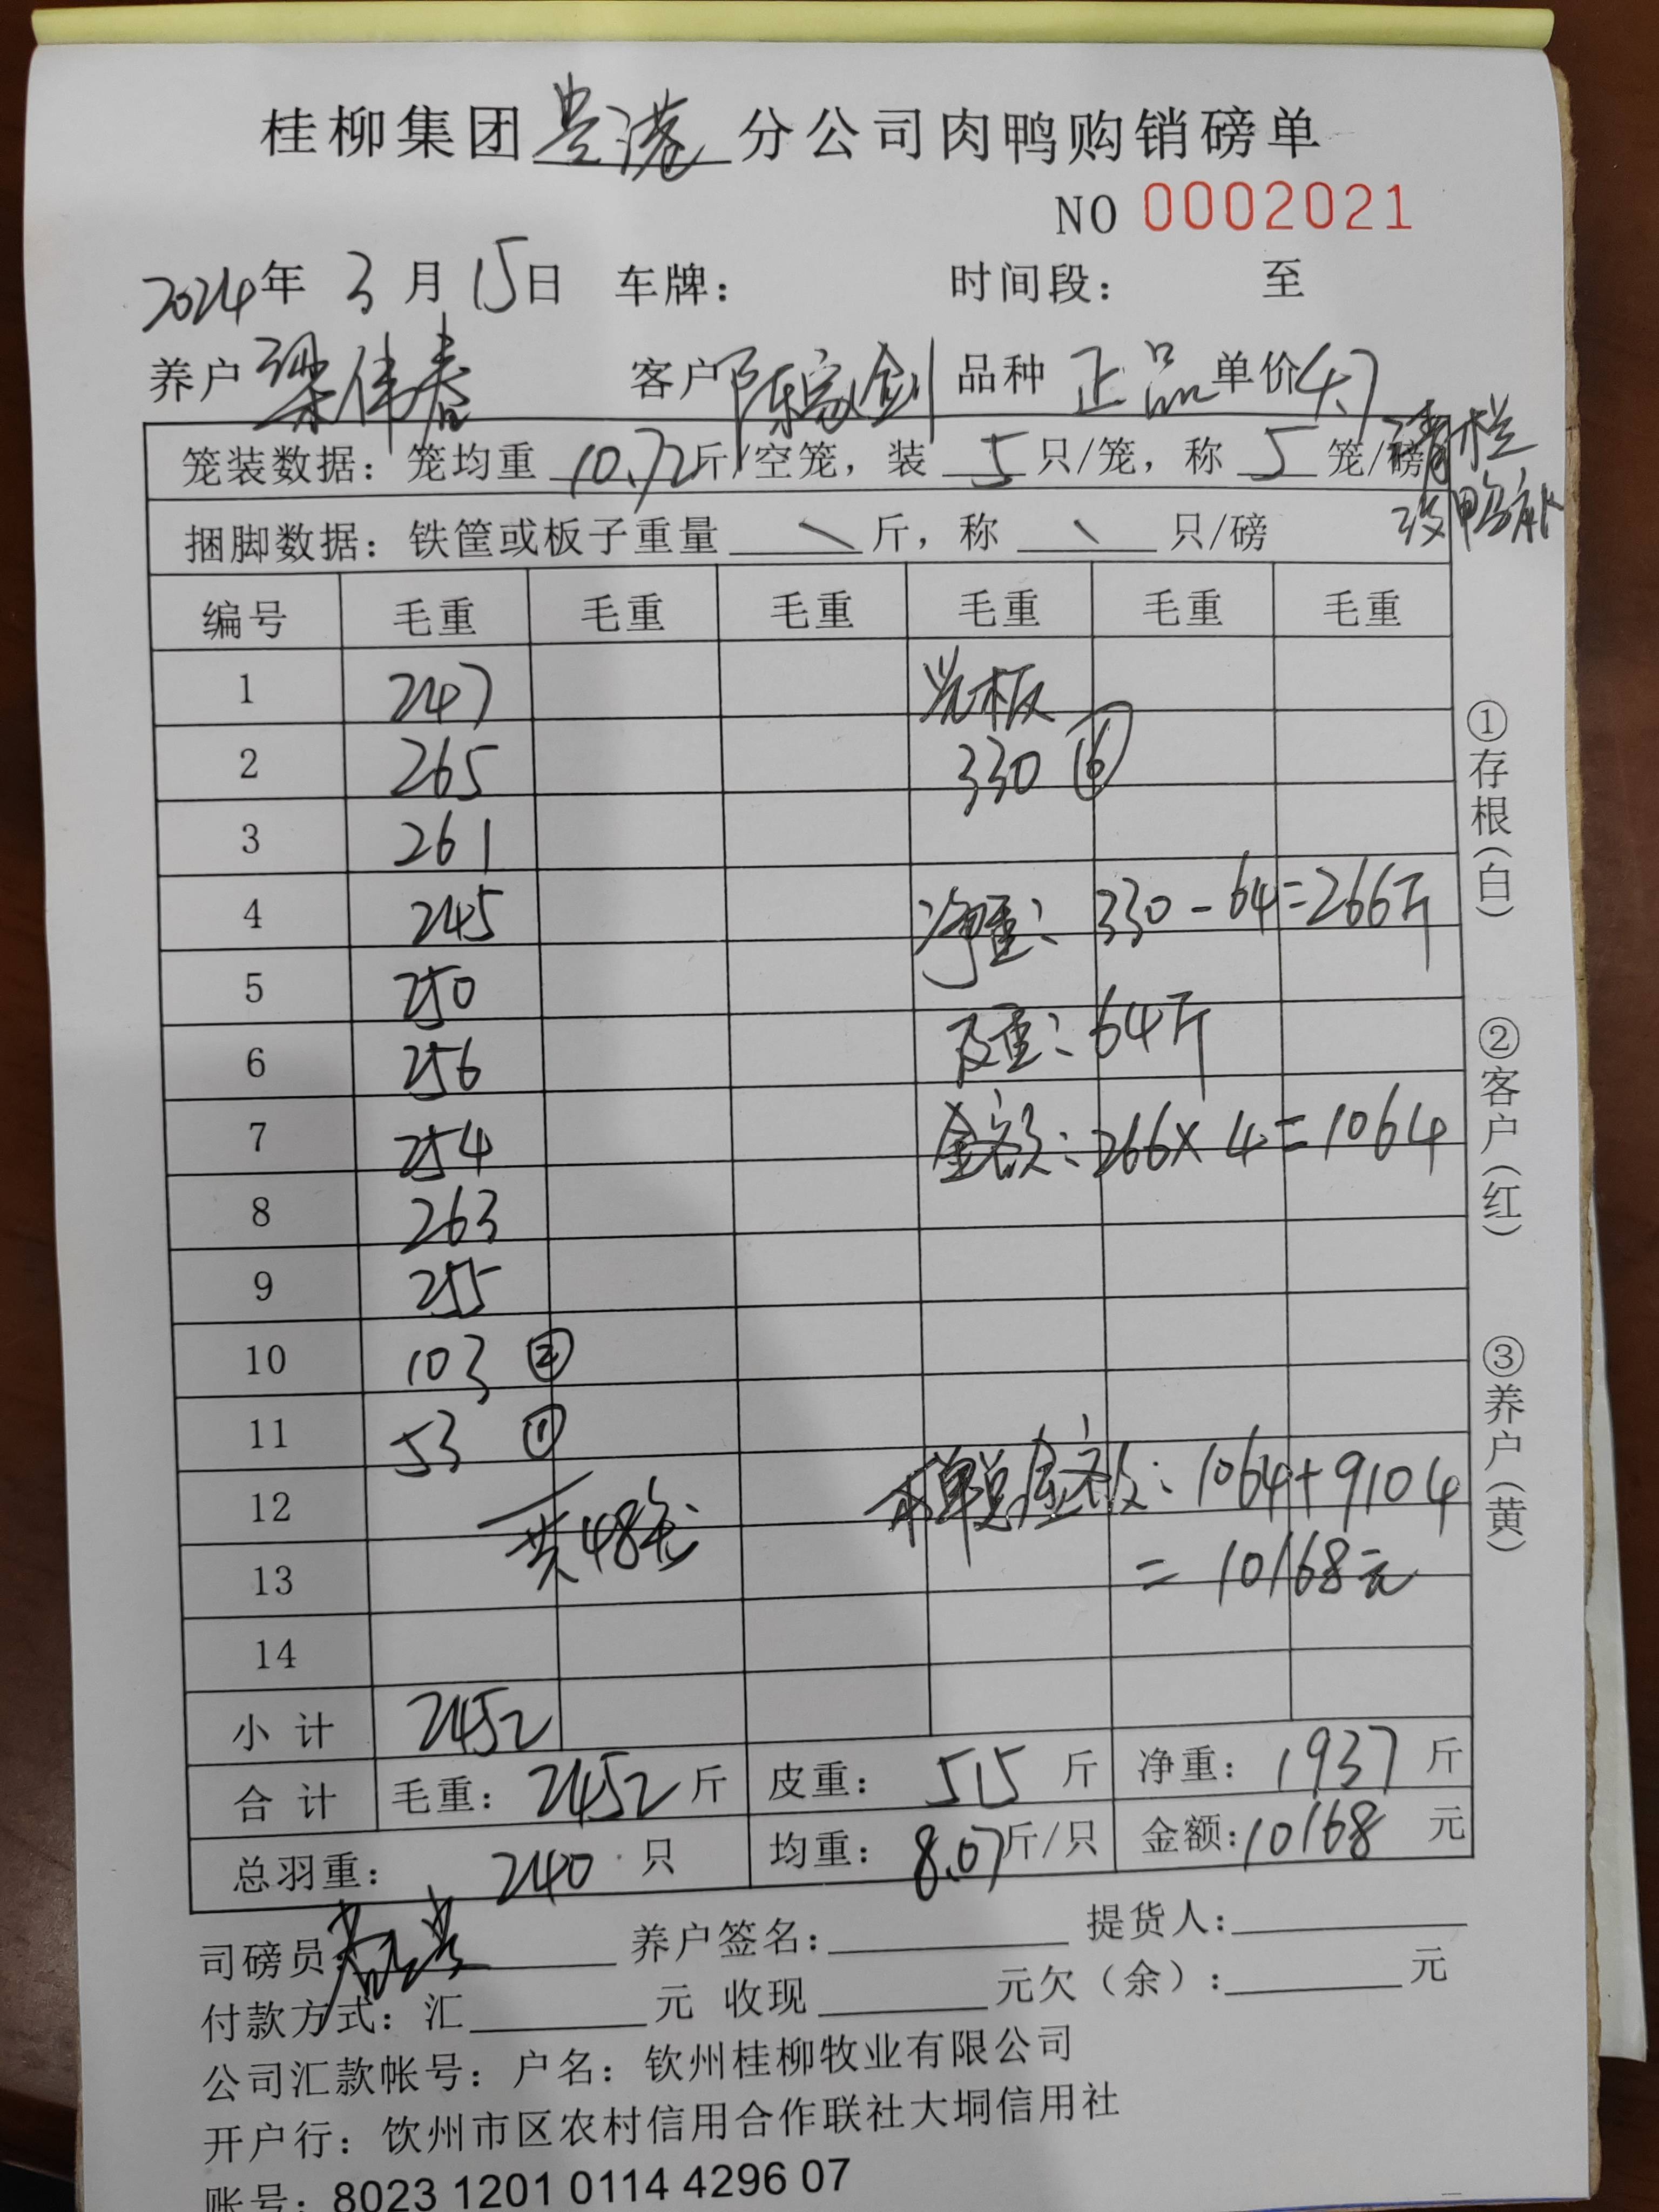 桂柳集团贵港分公司肉鸭购销磅单
NO 0002021
2024年 3月 15日 车牌: 时间段: 至
养户 梁伟春 客户 陈家剑 品种 正品 单价 4.7
清栏
没鸭补
笼装数据: 笼均重 10.72 斤/空笼, 装 5 只/笼, 称 5 笼/磅
捆脚数据: 铁筐或板子重量 \ 斤, 称 \ 只/磅
编号 毛重 毛重 毛重 毛重 毛重 毛重
1 247 光板
2 265 330 ⑥
3 261
4 245 净重: 330-64=266斤
5 250
6 256 皮重: 64斤
7 254 金额: 266×4=1064
8 263
9 255
10 103 ②
11 53 ①
12 共48笼 本单总金额: 1064+9104
13 =10168元
14
小计 2452
合计 毛重: 2452 斤 皮重: 515 斤 净重: 1937 斤
总羽重: 240 只 均重: 8.07 斤/只 金额: 10168 元
司磅员: 养户签名: 提货人:
付款方式: 汇 元 收现 元欠(余): 元
公司汇款帐号: 户名: 钦州桂柳牧业有限公司
开户行: 饮州市区农村信用合作联社大垌信用社
账号: 8023 1201 0114 4296 07
①存根(白)
②客户(红)
③养户(黄)